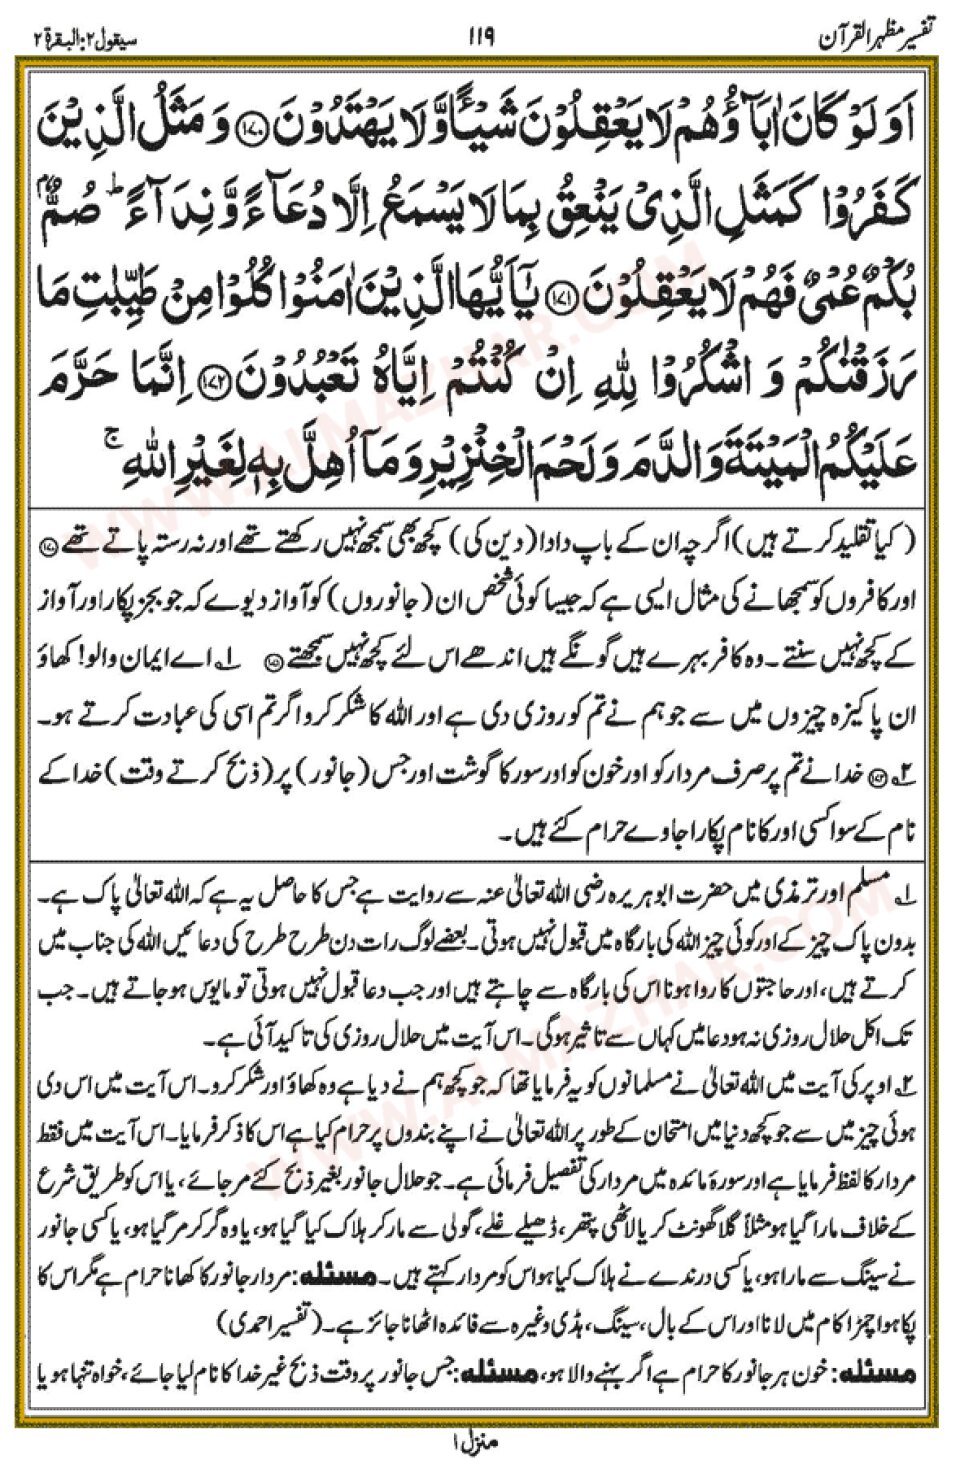 تفسیر مظہر القرآن
۱۱۹
سیقول ۲: البقرۃ ۲
اَوَلَوْ كَانَ اٰبَآؤُهُمْ لَا يَعْقِلُوْنَ شَيْـًٔا وَّلَا يَهْتَدُوْنَ ﴿۱۷۰﴾ وَ مَثَلُ الَّذِيْنَ
كَفَرُوْا كَمَثَلِ الَّذِيْ يَنْعِقُ بِمَا لَا يَسْمَعُ اِلَّا دُعَآءً وَّنِدَآءً ؕ صُمٌّۢ
بُكْمٌ عُمْيٌ فَهُمْ لَا يَعْقِلُوْنَ ﴿۱۷۱﴾ يٰۤاَيُّهَا الَّذِيْنَ اٰمَنُوْا كُلُوْا مِنْ طَيِّبٰتِ مَا
رَزَقْنٰكُمْ وَ اشْكُرُوْا لِلّٰهِ اِنْ كُنْتُمْ اِيَّاهُ تَعْبُدُوْنَ ﴿۱۷۲﴾ اِنَّمَا حَرَّمَ
عَلَيْكُمُ الْمَيْتَةَ وَالدَّمَ وَلَحْمَ الْخِنْزِيْرِ وَمَآ اُهِلَّ بِهٖ لِغَيْرِ اللّٰهِ ۚ
(کیا تقلید کرتے ہیں) اگرچہ ان کے باپ دادا (دین کی) کچھ بھی سمجھ نہیں رکھتے تھے اور نہ رستہ پاتے تھے ﴿۱۷۰﴾
اور کافروں کو سمجھانے کی مثال ایسی ہے کہ جیسا کوئی شخص ان (جانوروں) کو آواز دیوے کہ جو بجز پکار اور آواز
کے کچھ نہیں سنتے۔ وہ کافر بہرے ہیں گونگے ہیں اندھے اس لئے کچھ نہیں سمجھتے ﴿۱۷۱﴾ ۱؎ اے ایمان والو! کھاؤ
ان پاکیزہ چیزوں میں سے جو ہم نے تم کو روزی دی ہے اور اللہ کا شکر کرو اگر تم اسی کی عبادت کرتے ہو۔
﴿۱۷۲﴾ ۲؎ خدا نے تم پر صرف مردار کو اور خون کو اور سور کا گوشت اور جس (جانور) پر (ذبح کرتے وقت) خدا کے
نام کے سوا کسی اور کا نام پکارا جاوے حرام کئے ہیں۔
۱؎ مسلم اور ترمذی میں حضرت ابوہریرہ رضی اللہ تعالیٰ عنہ سے روایت ہے جس کا حاصل یہ ہے کہ اللہ تعالیٰ پاک ہے۔
بدون پاک چیز کے اور کوئی چیز اللہ کی بارگاہ میں قبول نہیں ہوتی۔ بعضے لوگ رات دن طرح طرح کی دعائیں اللہ کی جناب میں
کرتے ہیں، اور حاجتوں کا روا ہونا اس کی بارگاہ سے چاہتے ہیں اور جب دعا قبول نہیں ہوتی تو مایوس ہو جاتے ہیں۔ جب
تک اکل حلال روزی نہ ہو دعا میں کہاں سے تاثیر ہوگی۔ اس آیت میں حلال روزی کی تاکید آئی ہے۔
۲؎ اوپر کی آیت میں اللہ تعالیٰ نے مسلمانوں کو یہ فرمایا تھا کہ جو کچھ ہم نے دیا ہے وہ کھاؤ اور شکر کرو۔ اس آیت میں اس دی
ہوئی چیز میں سے جو کچھ دنیا میں امتحان کے طور پر اللہ تعالیٰ نے اپنے بندوں پر حرام کیا ہے اس کا ذکر فرمایا۔ اس آیت میں فقط
مردار کا لفظ فرمایا ہے اور سورۂ مائدہ میں مردار کی تفصیل فرمائی ہے۔ جو حلال جانور بغیر ذبح کئے مر جائے، یا اس کو طریق شرع
کے خلاف مارا گیا ہو مثلاً گلا گھونٹ کر یا لاٹھی پتھر، ڈھیلے غلے، گولی سے مار کر ہلاک کیا گیا ہو، یا وہ گر کر مر گیا ہو، یا کسی جانور
نے سینگ سے مارا ہو، یا کسی درندے نے ہلاک کیا ہو اس کو مردار کہتے ہیں۔ مسئلہ: مردار جانور کا کھانا حرام ہے مگر اس کا
پکا ہوا چمڑا کام میں لانا اور اس کے بال، سینگ، ہڈی وغیرہ سے فائدہ اٹھانا جائز ہے۔ (تفسیر احمدی)
مسئلہ: خون ہر جانور کا حرام ہے اگر بہنے والا ہو، مسئلہ: جس جانور پر وقت ذبح غیر خدا کا نام لیا جائے، خواہ تنہا ہو یا
منزل ۱
WWW.ALMAZHAR.COM
WWW.ALMAZHAR.COM